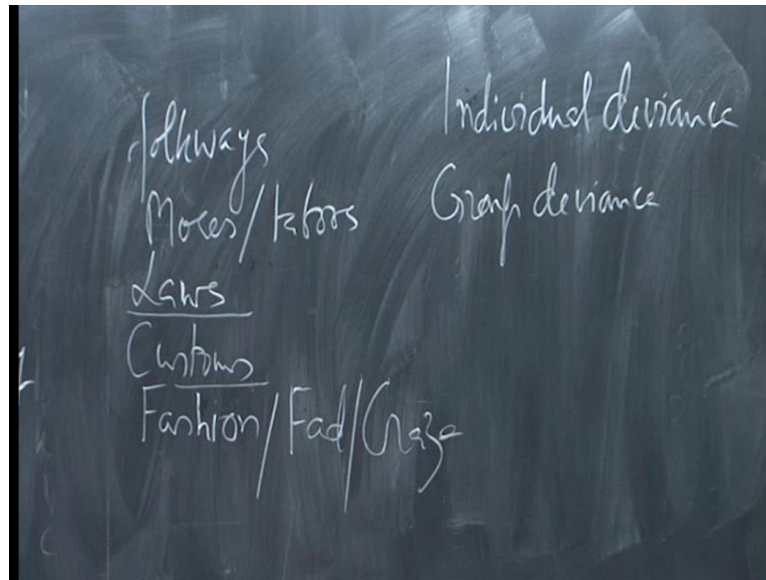 folkways
Mores/taboos
Laws
Customs
Fashion/Fad/Craze
Individual deviance
Group deviance